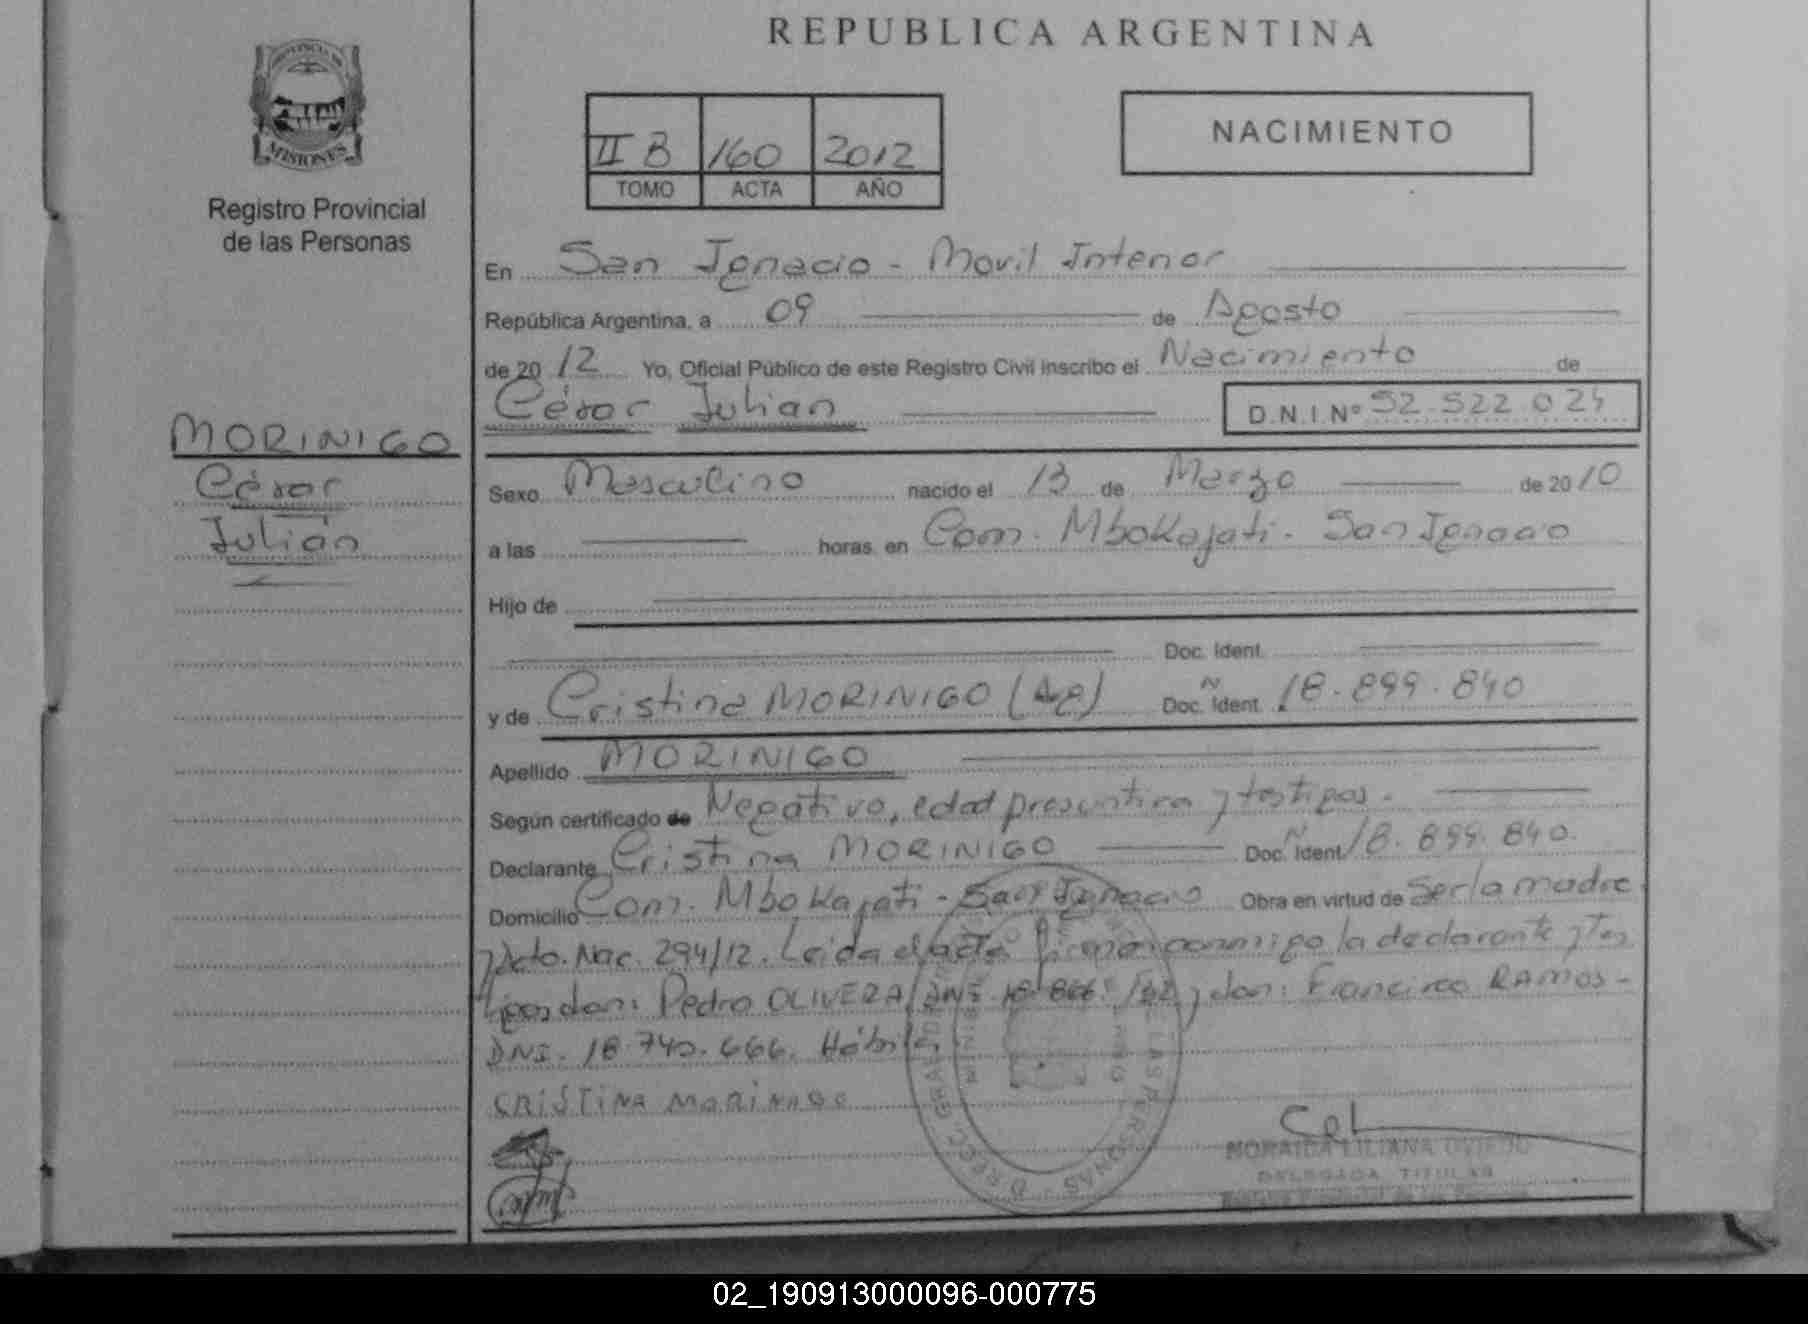 REPUBLICA ARGENTINA
PROVINCIA DE
MISIONES
Registro Provincial
de las Personas
II B 160 2012
TOMO ACTA AÑO
NACIMIENTO
En San Ignacio - Movil Interior
República Argentina, a 09 de Agosto
de 2012 Yo, Oficial Público de este Registro Civil inscribo el Nacimiento de
César Julian D.N.I.Nº 52.522.024
MORINIGO
César
Julián
Sexo Masculino nacido el 13 de Marzo de 2010
a las horas en Com. Mbokajati - San Ignacio
Hijo de
Doc. Ident.
y de Cristina MORINIGO (Ag) Doc. Ident. 18.899.840
Apellido MORINIGO
Según certificado de Negativo, edad presuntiva y testigos.
Declarante Cristina MORINIGO Doc. Ident. 18.899.840.
Domicilio Com. Mbokajati - San Ignacio Obra en virtud de Ser la madre
y Acto. Nac. 294/12. Leida el acta firma conmigo la declarante y Tes
tigos don: Pedro OLIVERA DNI. 18.866. y don: Francisco RAMOS -
DNI. 18.740.666. Hábiles
CRISTINA MORINIGO
LAS PERSONAS - DIREC. GRAL.
MORAIDA LILIANA OVIEDO
DELEGADA TITULAR
Registro Provincial de las Personas
02_190913000096-000775